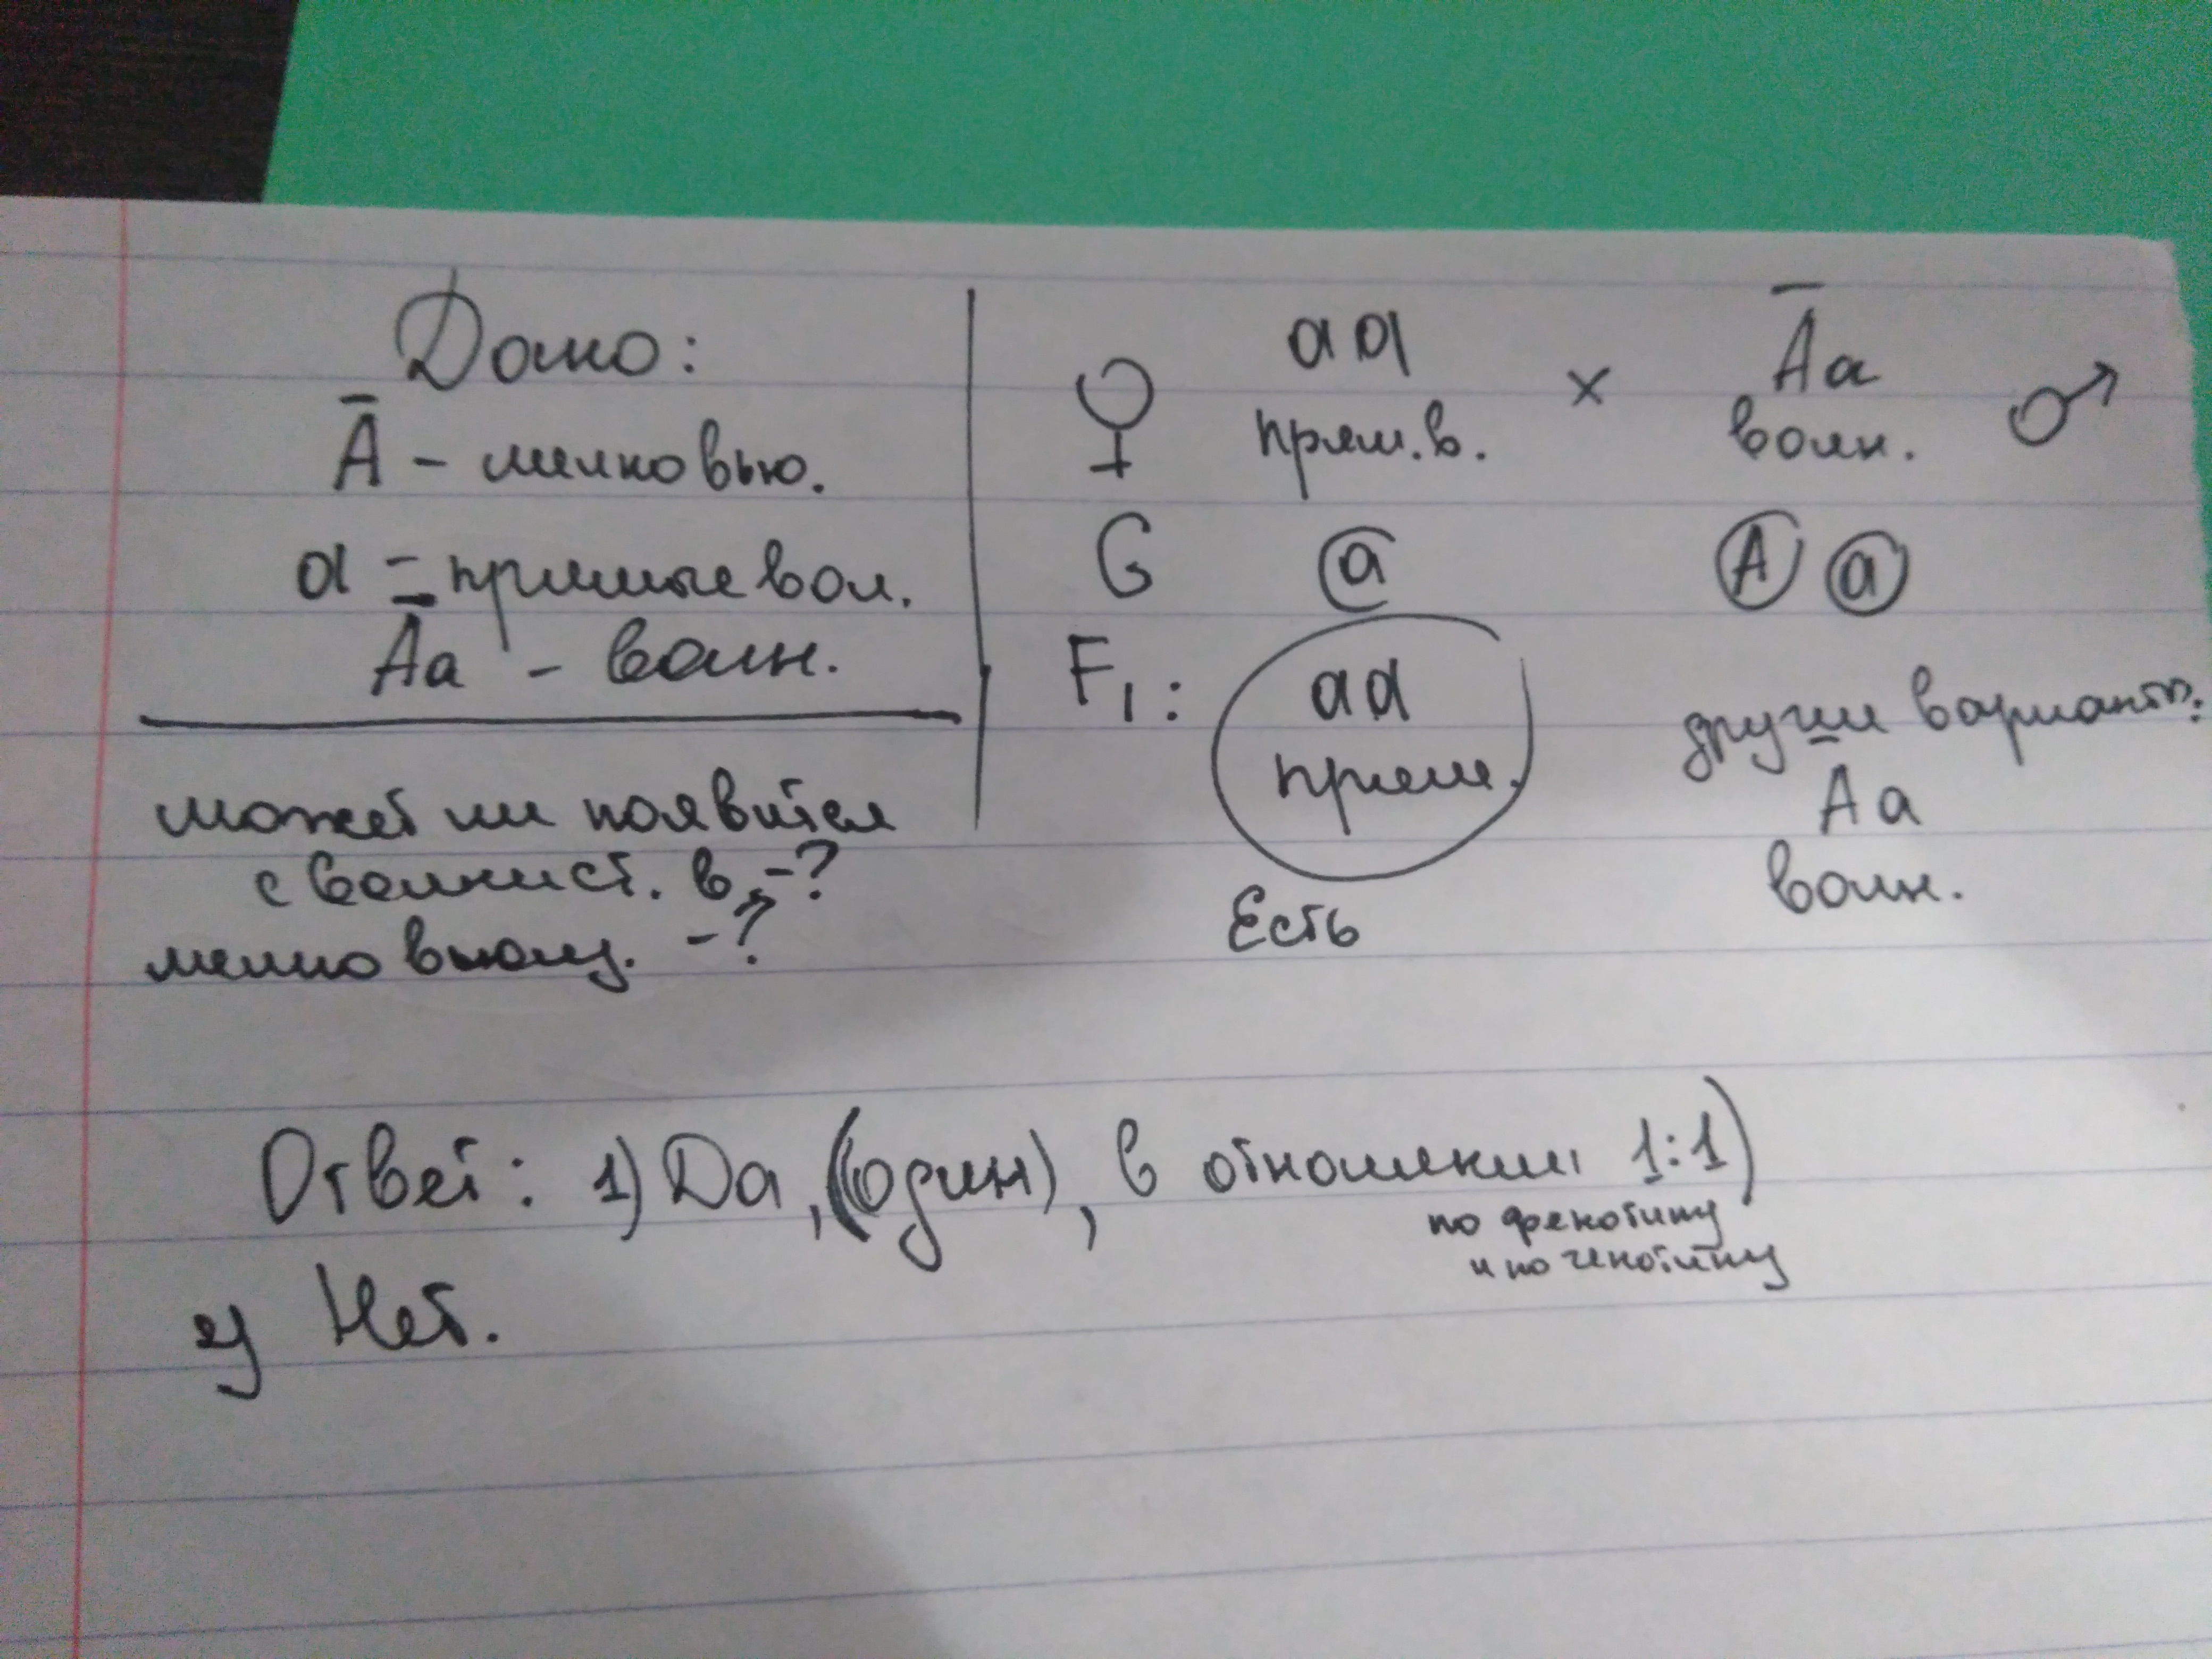 Дано:
Ā - мелковью.
а - прямые вол.
Āа - волн.
может ли появится
с волнист. в. -?
мелко вьющ. -?
♀ аа × Āа ♂
прям. в. волн.
G а А а
F₁: аа
прям.
Есть
другие варианты:
Āа
волн.
Ответ: 1) Да, (один), в отношении 1:1)
по фенотипу
и по генотипу
2) Нет.